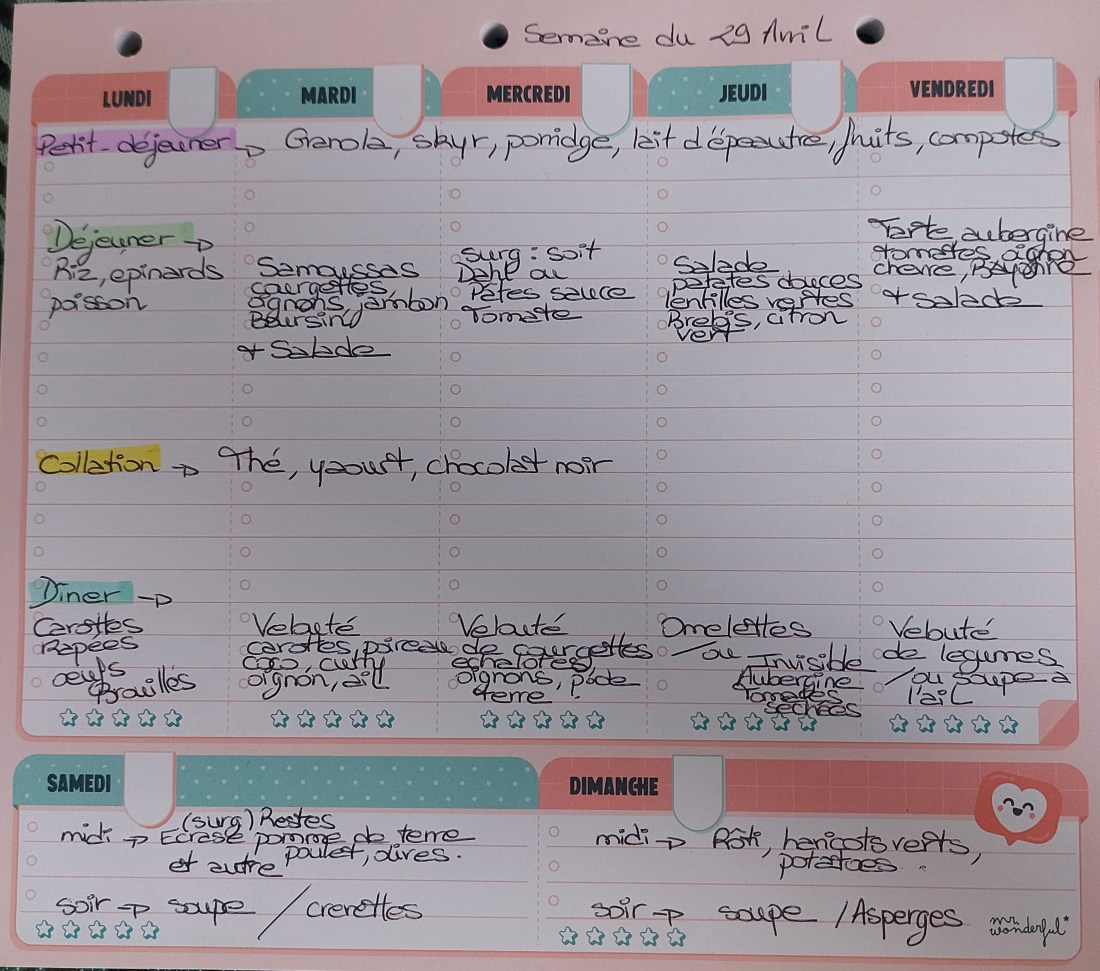 Semaine du 29 Avril
LUNDI
MARDI
MERCREDI
JEUDI
VENDREDI
Petit-déjeuner → Granola, skyr, porridge, lait d'épeautre, fruits, compotes
Déjeuner →
Riz, épinards
poisson
Samoussas
courgettes,
oignons, jambon
Boursin
+ Salade
Surg : soit
Dahl ou
Pâtes sauce
Tomate
Salade
patates douces
lentilles vertes
Brebis, citron
vert
Tarte aubergine
tomates, oignon
chèvre, Bayonne
+ Salade
Collation → Thé, yaourt, chocolat noir
Dîner →
Carottes
Rapées
œufs
Brouillés
Velouté
carottes, poireau
coco, curry
oignon, ail
Velouté
de courgettes
échalotes,
oignons, p. de
terre
Omelettes
/ou Invisible
Aubergine
Tomates
séchées
Velouté
de légumes
/ou soupe à
l'ail
SAMEDI
(surg) Restes
midi → Ecrasé pomme de terre
et autre poulet, olives.
soir → soupe / crevettes
DIMANCHE
midi → Rôti, haricots verts,
potatoes
soir → soupe / Asperges
mr. wonderful*